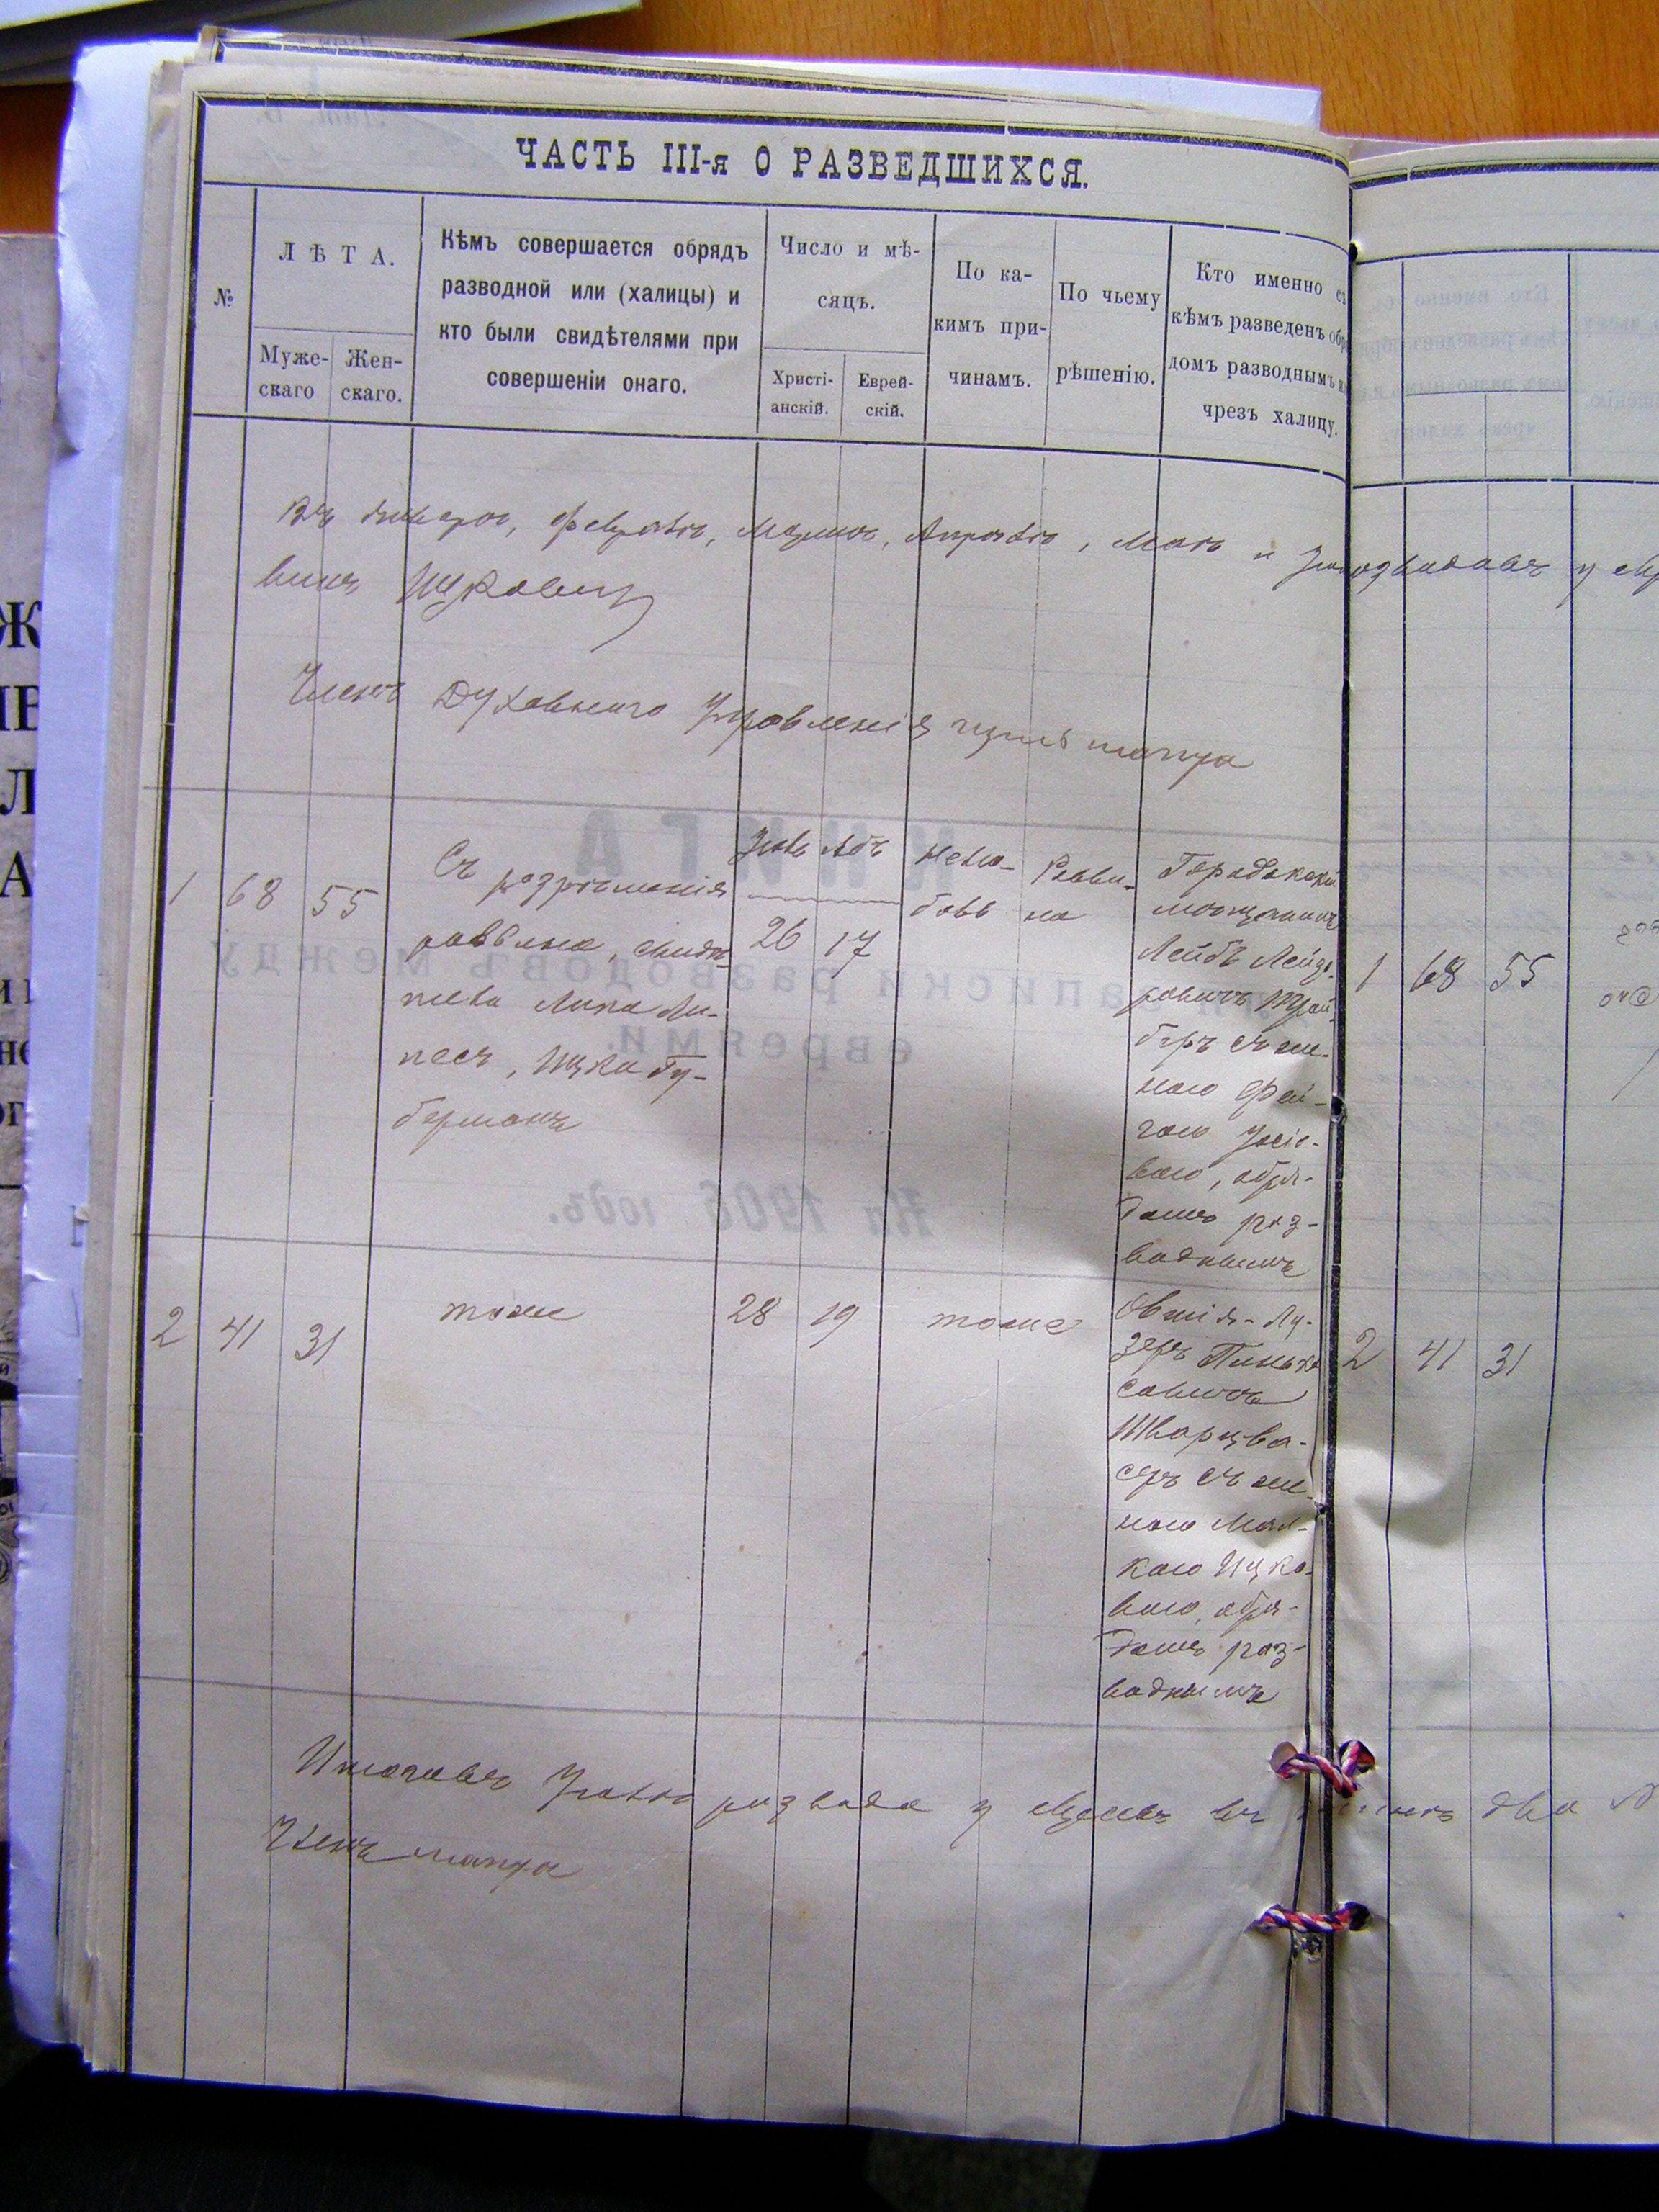 ЧАСТЬ III-я О РАЗВЕДШИХСЯ.
№
ЛѢТА.
Муже-
скаго
Жен-
скаго.
Кѣмъ совершается обрядъ
разводной или (халицы) и
кто были свидѣтелями при
совершеніи онаго.
Число и мѣ-
сяцъ.
Христі-
анскій.
Еврей-
скій.
По ка-
кимъ при-
чинамъ.
По чьему
рѣшенію.
Кто именно
кѣмъ разведенъ
домъ разводнымъ
чрезъ халицу.
Въ Январѣ, Февралѣ, Мартѣ, Апрѣлѣ, Маѣ и
Членъ Духовнаго Управленія
1 68 55
Съ разрѣшенія
раввина, свидѣ-
тели Липа Ли-
песъ, Ицко Гу-
берманъ
Іюль Абъ
26 17
нелю-
бовь
Равви-
на
Городокскій
мѣщанинъ
Лейбъ Лейзе-
ровичъ Трай-
беръ съ же-
ною Фей-
гою Іосіо-
вою, обря-
домъ раз-
воднымъ
2 41 31
тоже
28 19
тоже
Овшія-Лу-
зеръ Пинька
совичъ
Шварцва-
серъ съ же-
ною Мал-
кою Ицко-
вою, обря-
домъ раз-
воднымъ
Итого въ Іюлѣ развода у евреевъ два
Членъ
1 68 55
2 41 31